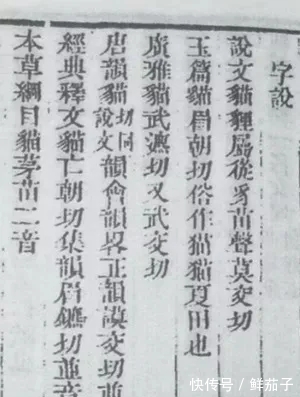 字說
說文貓貍屬從豸苗聲莫交切
玉篇貓眉朝切俗作猫貓夏田也
廣雅貓武瀌切又武交切
唐韻貓切同說文韻會韻畧正韻謨交切並
經典釋文貓亡朝切集韻眉鑣切並音
本草綱目貓茅苗二音
快传号/鲜茄子